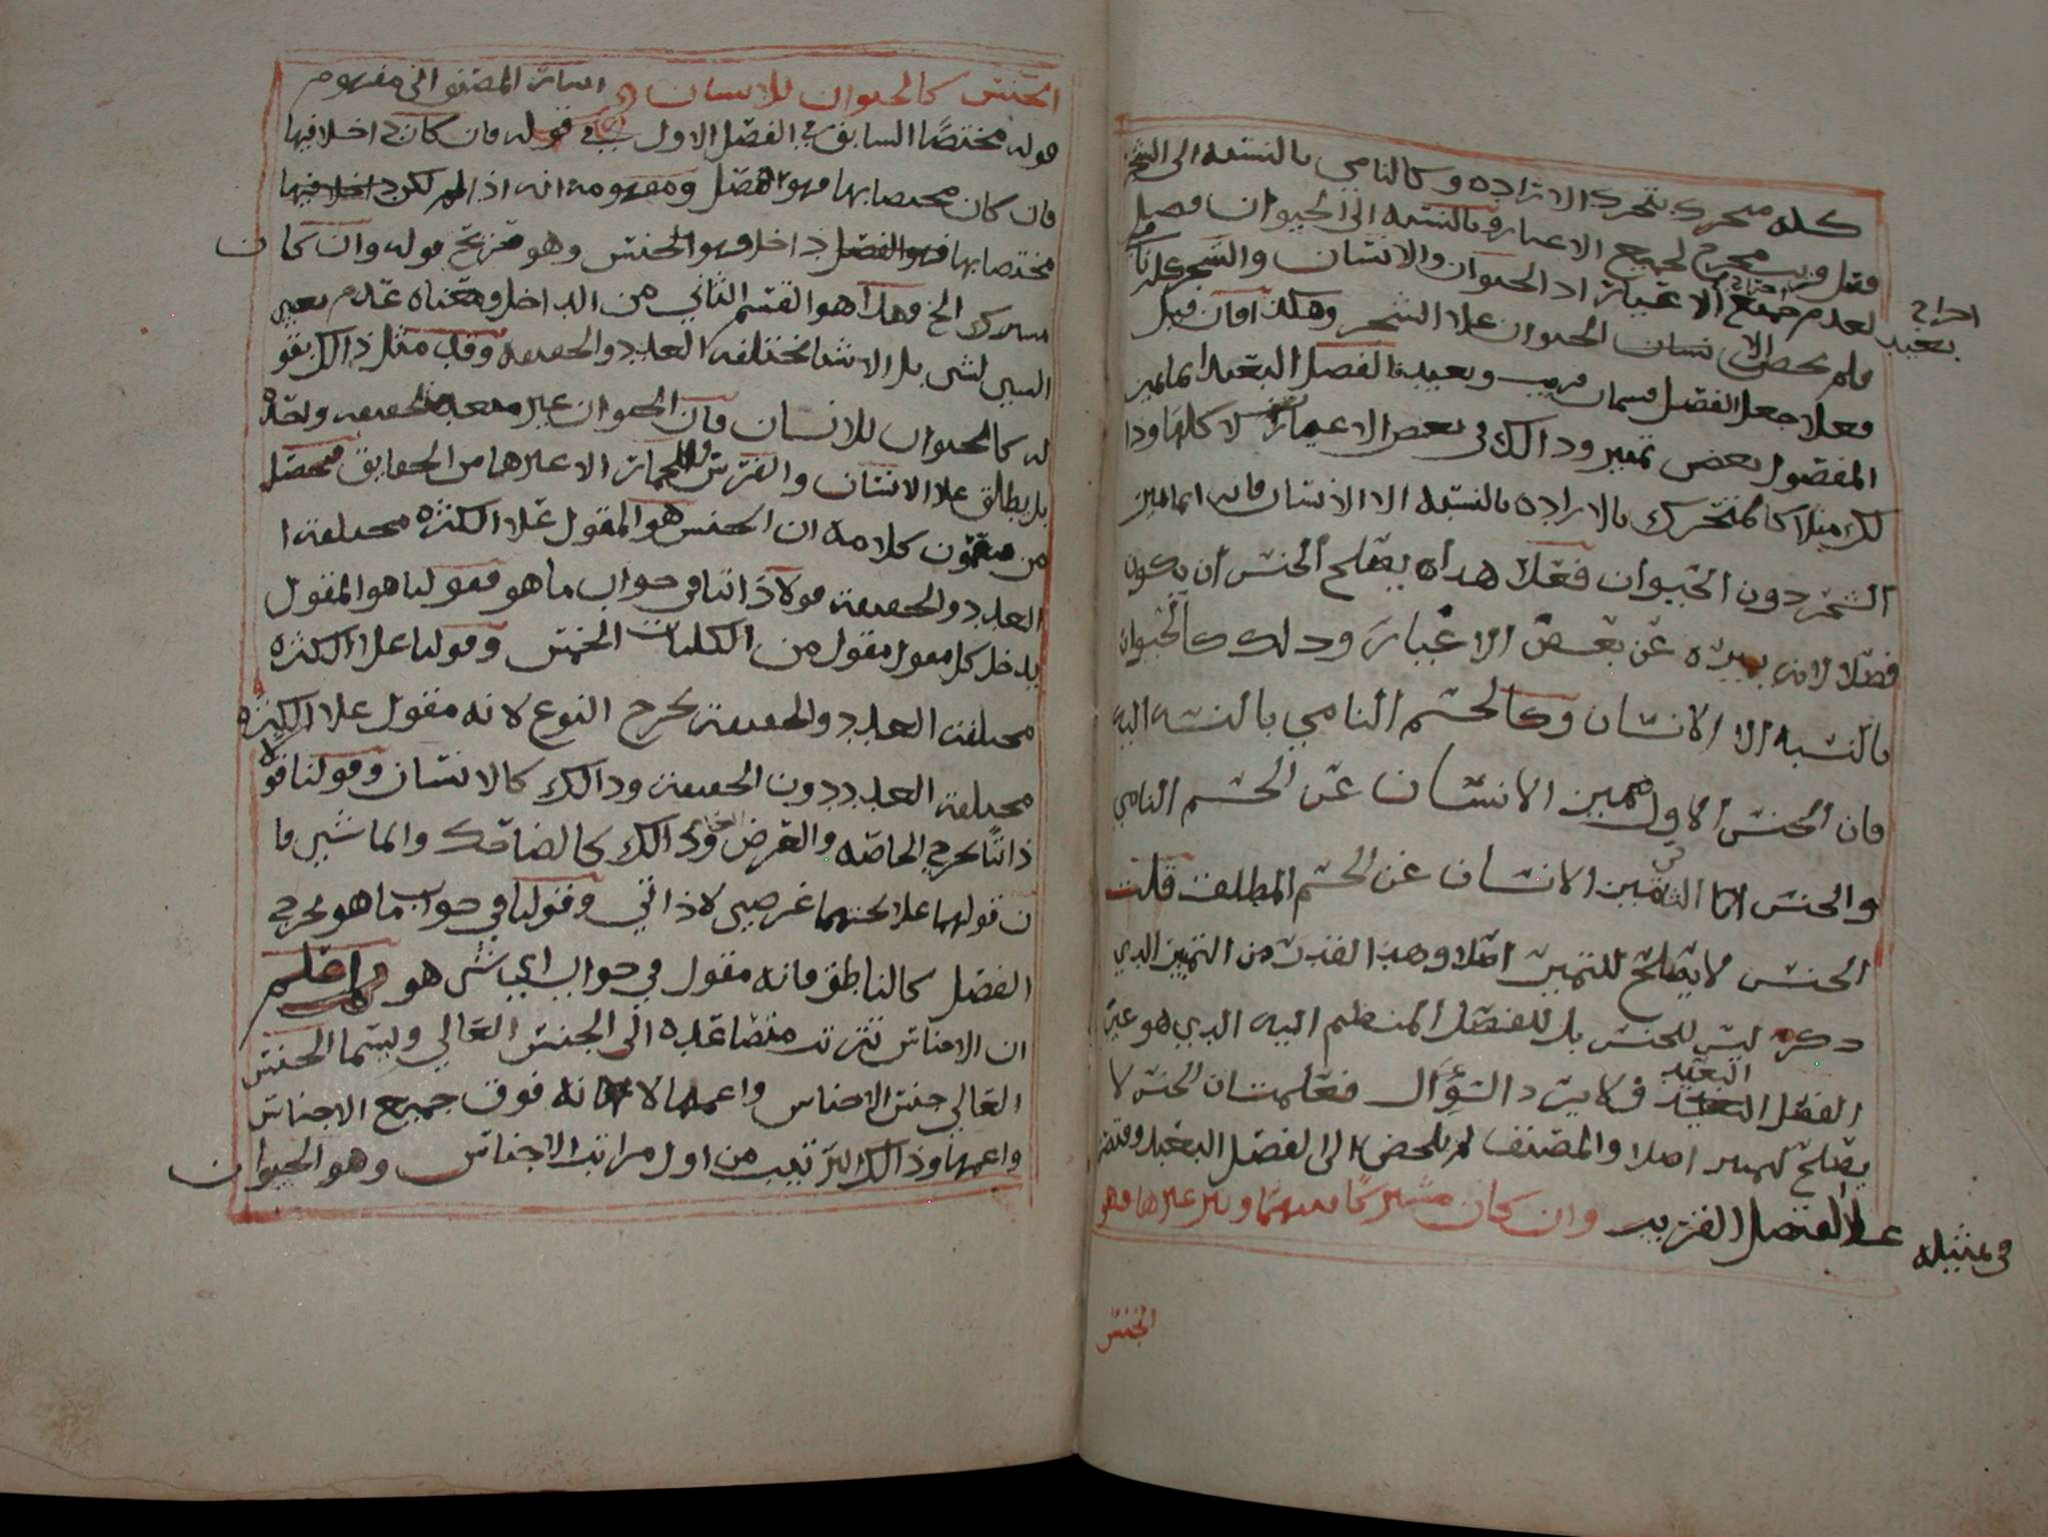 كله متحرك يتحرك الاراده وكالنامي بالنسبه الى
فصل قريب مخرج لجميع الاعيار وبالنسبه الى الحيوان فصل
بعيد لعدم اخراج جميع الاغيار اذ الحيوان والانسان والشجر
اخراج
فلم يحصل الانسان الحيوان علا الشجر وهكذا فان قيل
فعلا جعل الفصل قسمان قريب وبعيد فالفصل البعيد انما يميز
المفصول بعض تمييز وذالك في بعض الاغيار لا كلها وذا
لك مثلا كالمتحرك بالاراده بالنسبه الا الانسان فانه انما يميز
الشجر دون الحيوان فعلا هذا يصلح الجنس ان يكون
فصلا لانه يميزه عن بعض الاغيار وذلك كالحيوان
بالنسبه الا الانسان وكالجسم النامي بالنسبه اليه
فان الجنس الاول مميز الانسان عن الجسم النامي
والجنس الثاني يميز الانسان عن الجسم المطلق قلت
الجنس لا يصلح للتمييز اصلا وهذا القدر من التمييز الذي
ذكر ليس للجنس بل للفصل المنظم اليه الذي هو عين
الفصل البعيد فلا يرد السؤال فعلمت ان الجنس لا
يصلح لتمييز اصلا والمصنف لم يلحض الى الفصل البعيد
في تمثيله علا الفصل القريب وان كان مشتركا بينهما وبين غيرها فهو
الجنس
الجنس كالحيوان للانسان اشارة المصنف الى مفهوم
قوله مختصا السابق في الفصل الاول في قوله فان كان داخلا فيها
فان كان مختصا بها فهو الفصل ومفهومه انه اذا لم يكن
مختصا بها داخل فهو الجنس وهو قوله وان كان
مشترك الخ وهذا هو القسم الثاني من الداخل ومعناه عدم تعيين
الشي لشي بل الاشيا مختلفه العدد والحقيقه وقد مثل ذالك بقو
له كالحيوان للانسان فان الحيوان غير متحد الحقيقه
بل يطلق علا الانسان والفرس والحمار الا غيرها من الحقايق فحصل
من مضمون كلامه ان الجنس هو المقول علا الكثره مختلفة ا
العدد والحقيقه قولا ذاتيا في جواب ما هو فقولنا هو المقول
يدخل كل مقول مقول من الكليات الخمس وقولنا علا الكثره
مختلفة العدد والحقيقه يخرج النوع لانه مقول علا الكثره
مختلفة العدد دون الحقيقه وذالك كالانسان وقولنا قو
لا
ذاتيا يخرج الخاصه والعرض وذالك كالضاحك والماشي فا
ن قولهما علا تحتهما عرضي لا ذاتي وقولنا في جواب ما هو يخرج
الفصل كالناطق فانه مقول في جواب اي شي هو واعلم
ان الاجناس تترتب متصاعده الى الجنس العالي ويسما الجنس
العالي جنس الاجناس واعمها لانه فوق جميع الاجناس
واعمها وذالك الترتيب من اول مراتب الاجناس وهو الحيوان